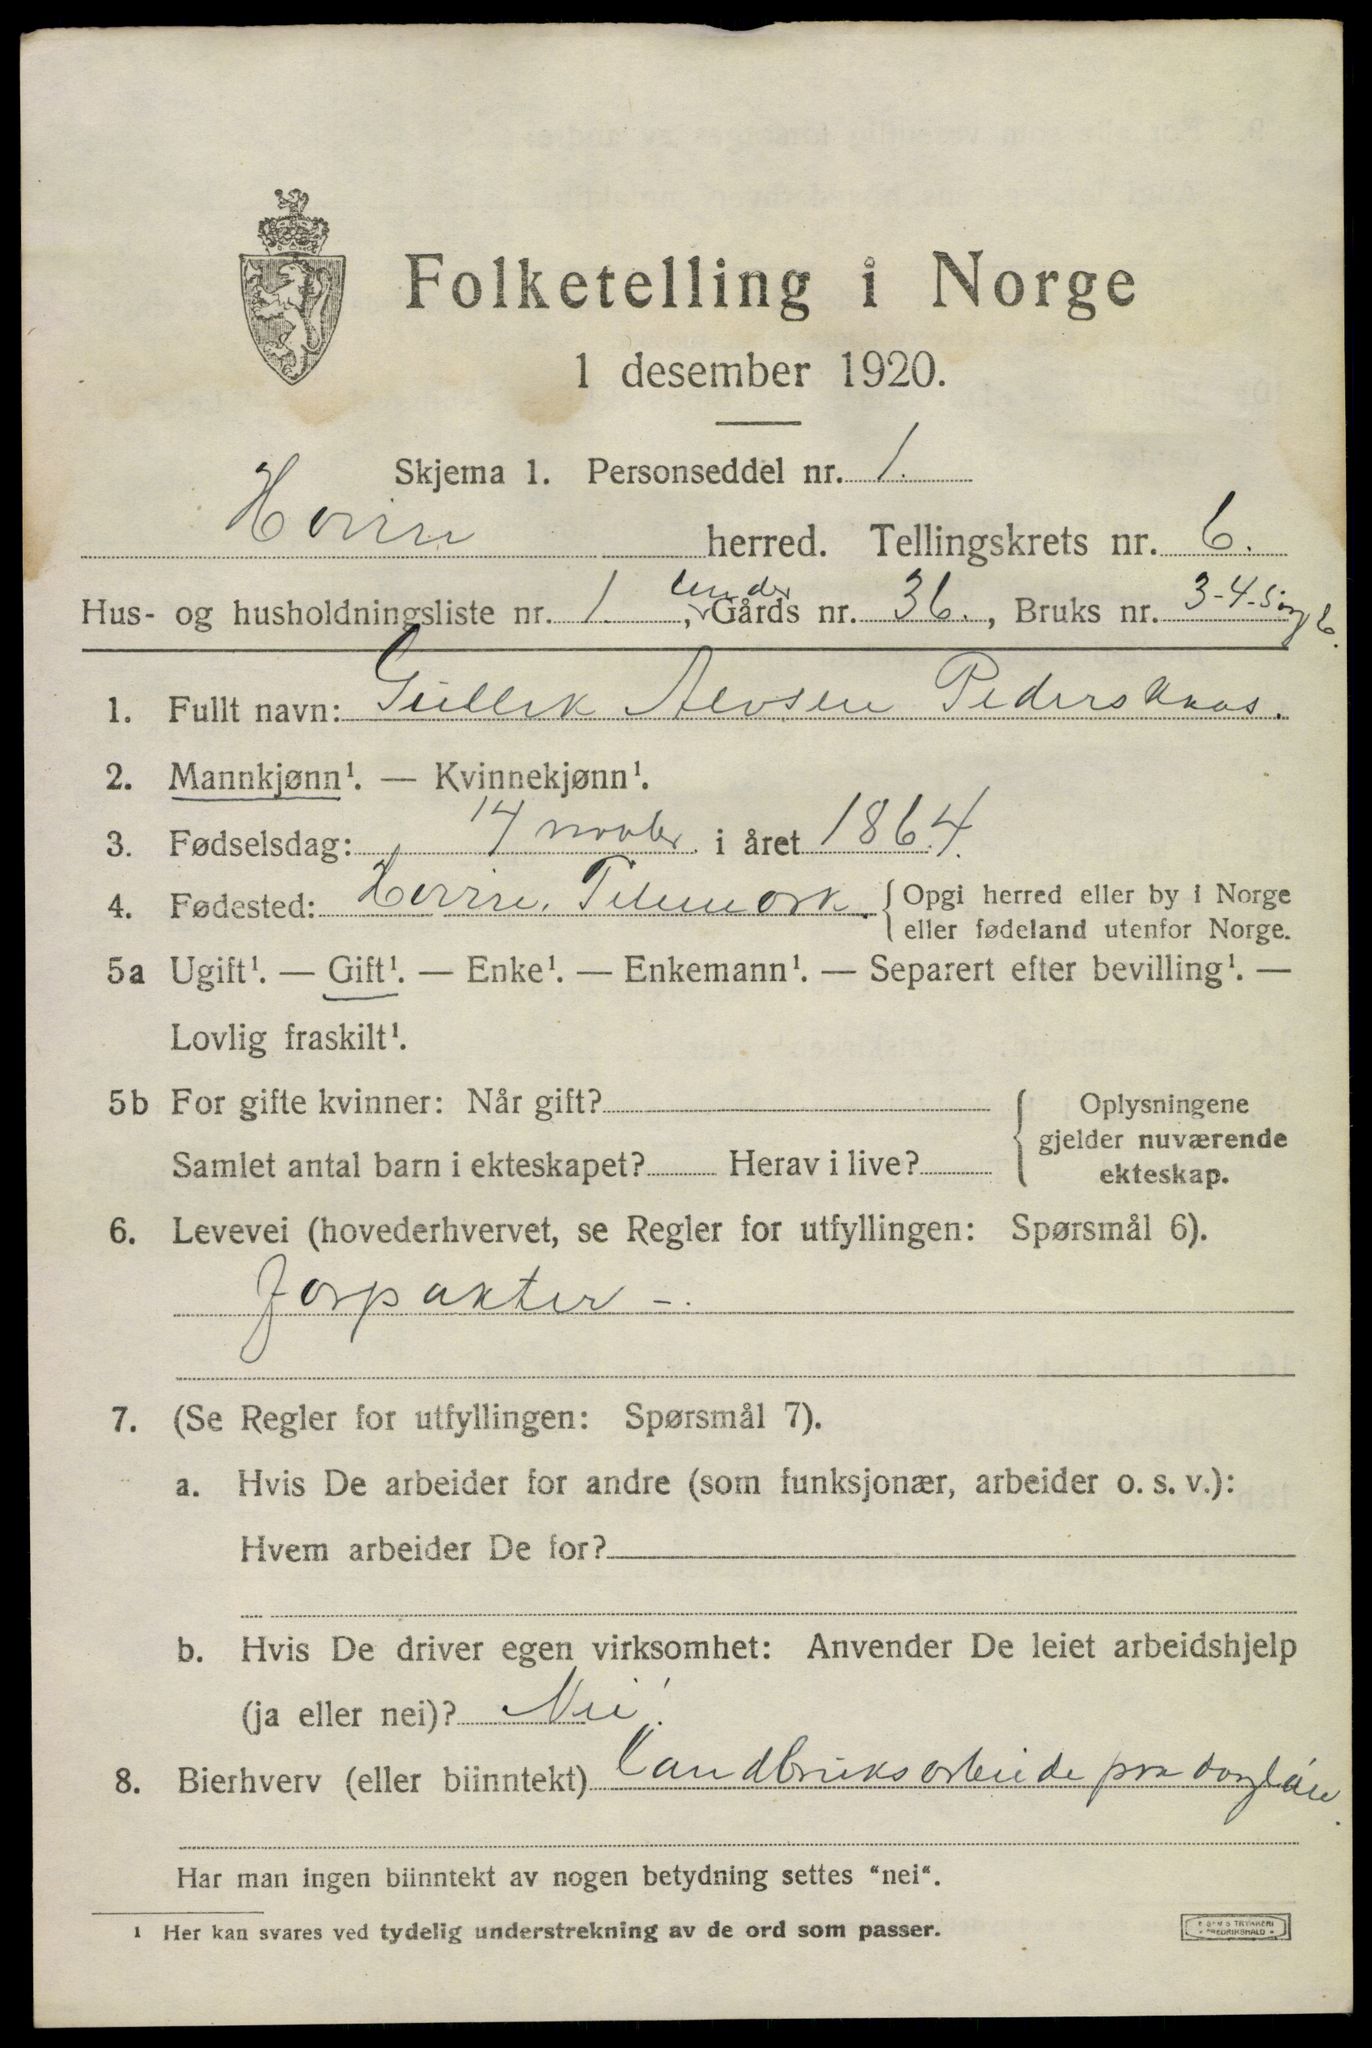 Folketelling i Norge
1 desember 1920.
Skjema 1. Personseddel nr. 1.
herred. Tellingskrets nr. 6.
Hus- og husholdningsliste nr. 1. under, Gårds nr. 36., Bruks nr. 3-4-5 og 6.
1. Fullt navn: Gullik Alvsen
2. Mannkjønn¹. — Kvinnekjønn¹.
3. Fødselsdag: 14 novbr i året 1864.
4. Fødested: Telemark. {Opgi herred eller by i Norge
eller fødeland utenfor Norge.
5a Ugift¹. — Gift¹. — Enke¹. — Enkemann¹. — Separert efter bevilling¹. —
Lovlig fraskilt¹.
5b For gifte kvinner: Når gift? { Oplysningene
gjelder nuværende
Samlet antal barn i ekteskapet? Herav i live? ekteskap.
6. Levevei (hovederhvervet, se Regler for utfyllingen: Spørsmål 6).
Forpakter -.
7. (Se Regler for utfyllingen: Spørsmål 7).
a. Hvis De arbeider for andre (som funksjonær, arbeider o. s. v.):
Hvem arbeider De for?
b. Hvis De driver egen virksomhet: Anvender De leiet arbeidshjelp
(ja eller nei)? Nei!
8. Bierhverv (eller biinntekt) Landbruksarbeide paa dagløn.
Har man ingen biinntekt av nogen betydning settes “nei“.
1 Her kan svares ved tydelig understrekning av de ord som passer.
TRYKKERI
FREDRIKSHALD